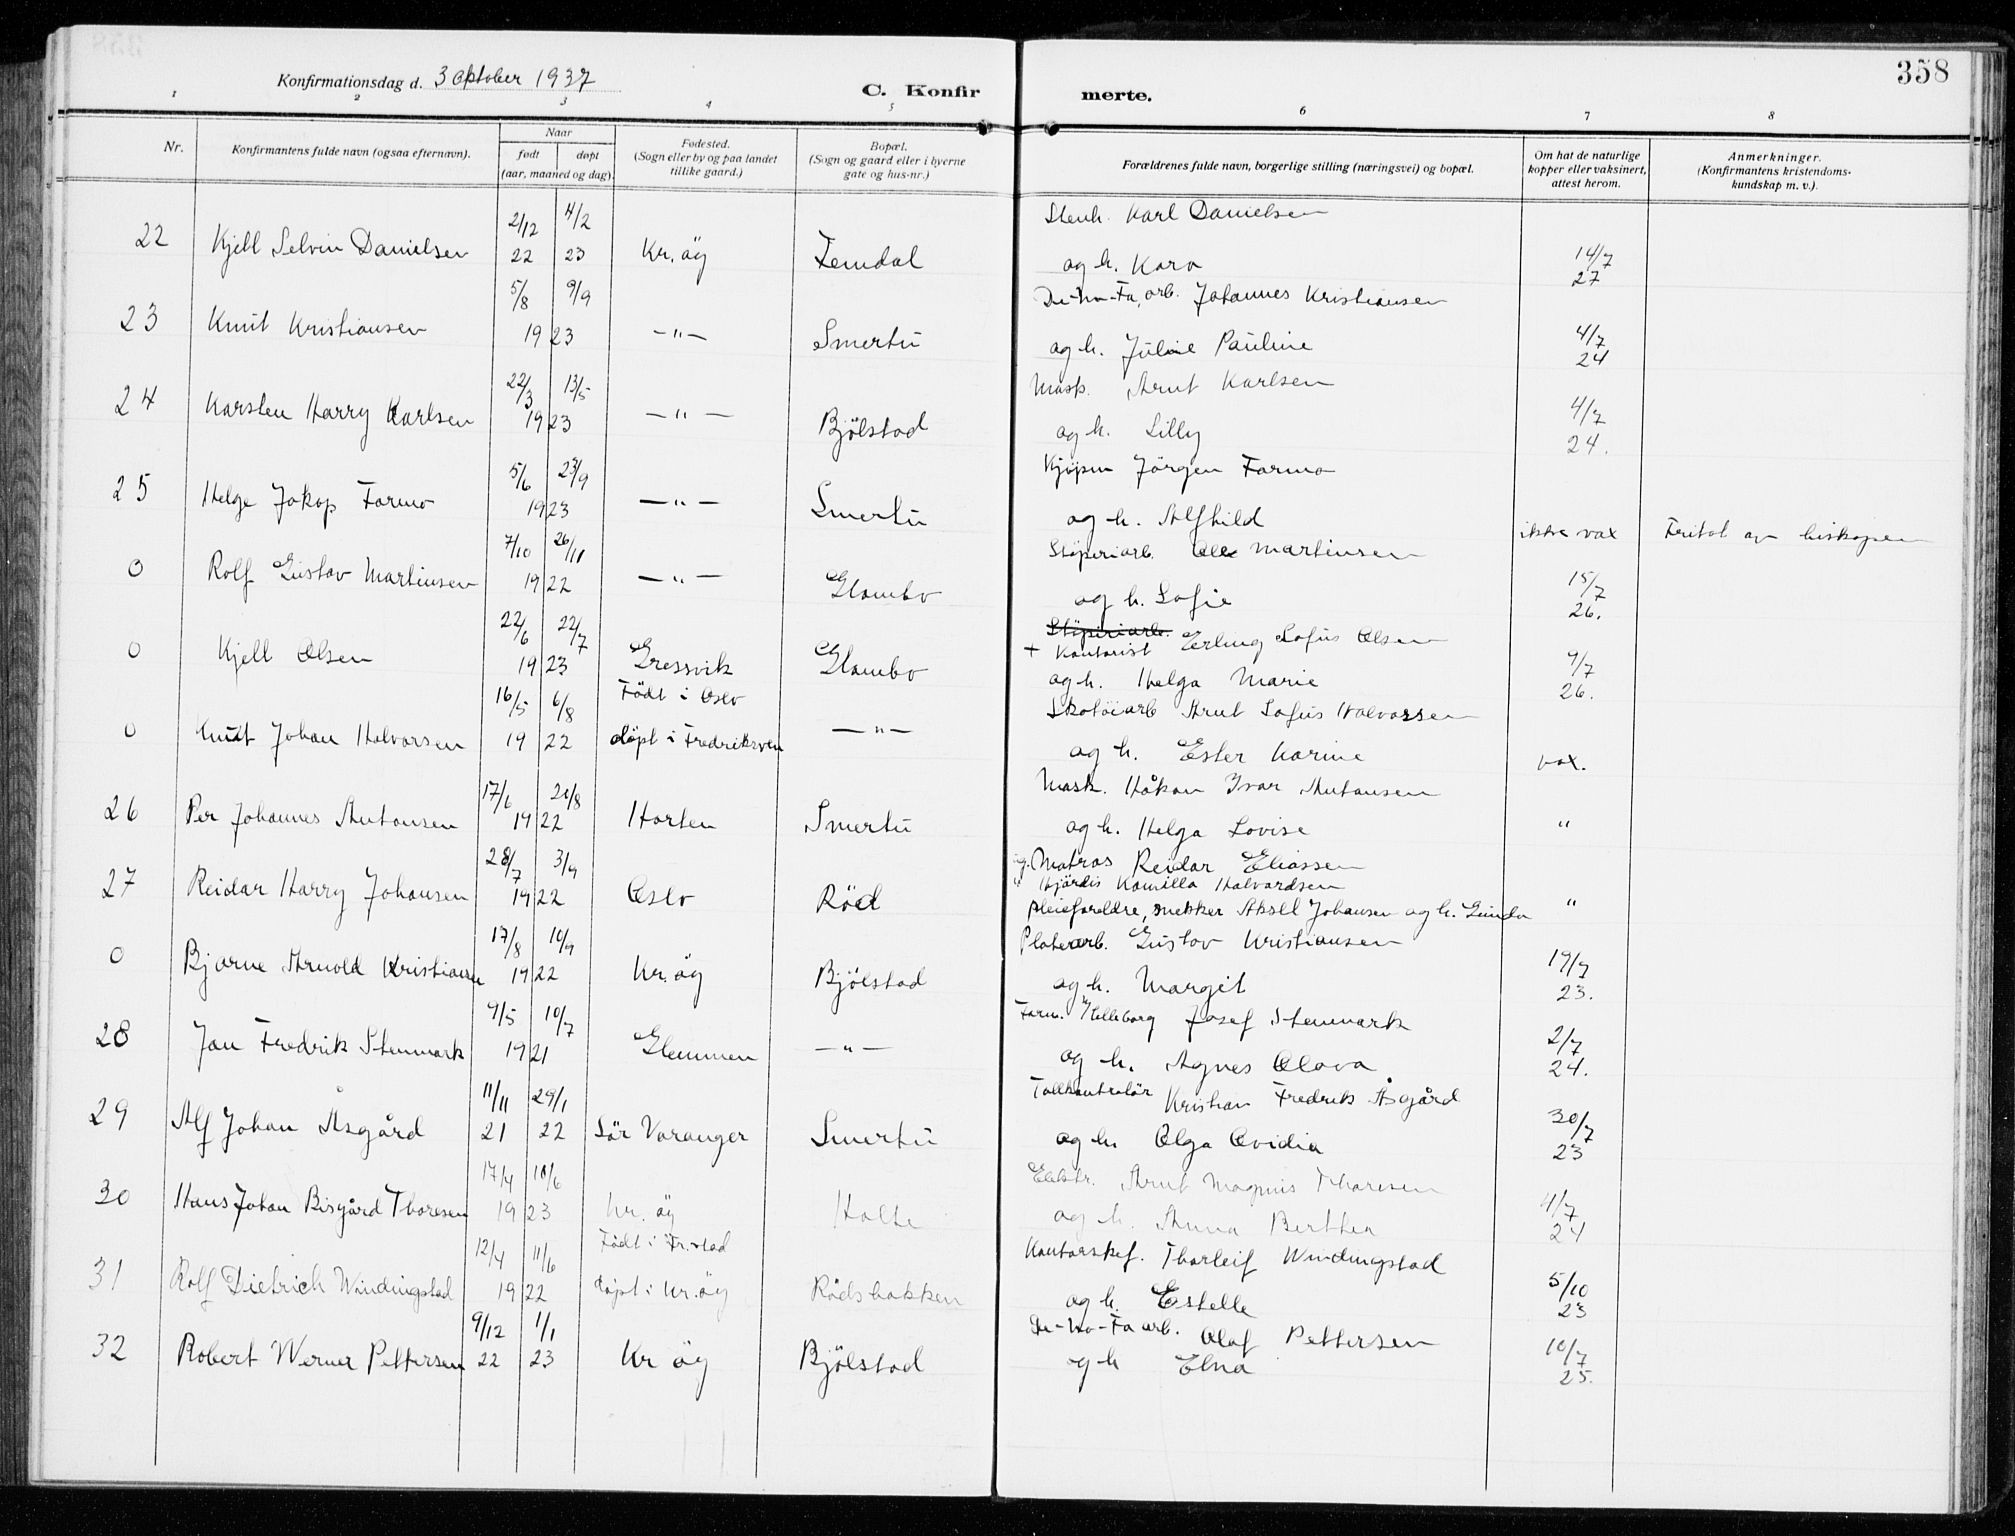 358
Konfirmationsdag d. 3 Oktober 1937
C. Konfir merte.
1 2 3 4 5 6 7 8
Nr.
Konfirmantens fulde navn (ogsaa efternavn).
Naar
født døpt
(aar, maaned og dag).
Fødested.
(Sogn eller by og paa landet
tillike gaard.)
Bopæl.
(Sogn og gaard eller i byerne
gate og hus-nr.)
Forældrenes fulde navn, borgerlige stilling (næringsvei) og bopæl.
Om hat de naturlige
kopper eller vaksinert,
attest herom.
Anmerkninger.
(Konfirmantens kristendoms-
kundskap m. v.).
2/12 4/2 Stenh. Karl Danielsen
22 Kjell Selvin Danielsen 22 23 Kr.øy Femdal og h. Kara 14/7 27
5/8 9/9 De-No-Fa, arb. Johannes Kristiansen
23 Knut Kristiansen 19 23 —"— Smertu og h. Julie Pauline 4/7 24
22/3 13/5 Mask. Arnt Karlsen
24 Karsten Harry Karlsen 19 23 —"— Bjölstad og h. Lilly 4/7 24.
5/6 23/9 Kjöpm Jörgen Farmo
25 Helge Jakop Farmo 19 23 —"— Smertu og h. Alfhild ikke vax Fritat av biskopen
7/10 26/11 Stöperiarb. Ole Martinsen
0 Rolf Gustav Martinsen 19 22 —"— Glombo og h. Sofie 15/7 26.
22/6 22/7 Stöperiarb.
+ Kontorist Erling Sofus Olsen
0 Kjell Olsen 19 23 Gressvik Glombo og h. Helga Marie 4/7 26.
16/5 6/8 Födt i Oslo Skotöiarb Arnt Sofus Halvorsen
0 Knut Johan Halvorsen 19 22 döpt i Fredriksvern —"— og h. Ester Karine vax.
17/6 20/8 Mask. Håkon Ivar Antonsen
26 Per Johannes Antonsen 19 22 Horten Smertu og h. Helga Lovise "
28/7 3/9 ug. Matros Reidar Eliassen
" Hjördis Kamilla Halvardsen
27 Reidar Harry Johansen 19 22 Oslo Röd pleieforeldre, snekker Aksel Johansen og h. Gunda "
17/8 10/9 Platearb. Gustav Kristiansen
0 Bjarne Arnold Kristiansen 19 22 Kr.öy Bjölstad og h. Margit 19/7 23.
9/5 10/7 Form. Josef Stenmark
28 Jan Fredrik Stenmark 19 21 Glemmen —"— og h. Agnes Olava 2/7 24.
11/11 29/1 Tollkontrolör Kristian Fredrik Åsgård
29 Alf Johan Åsgård 21 22 Sör Varanger Smertu og h. Olga Ovidia 30/7 23
17/4 10/6 Elektr. Arnt Magnus Thoresen
30 Hans Johan Bisgård Thoresen 19 23 Kr. öy Holte og h. Anna Berthea 4/7 24
12/4 11/6 Födt i Fr.stad Kontorskef. Thorleif Windingstad
31 Rolf Dietrich Windingstad 19 22 döpt i Kr.öy Rödsbakken og h. Estelle 5/10 23
9/12 1/1 De-No-Fa arb. Olaf Pettersen
32 Robert Werner Pettersen 22 23 Kr öy Bjölstad og h Elna 10/7 25.